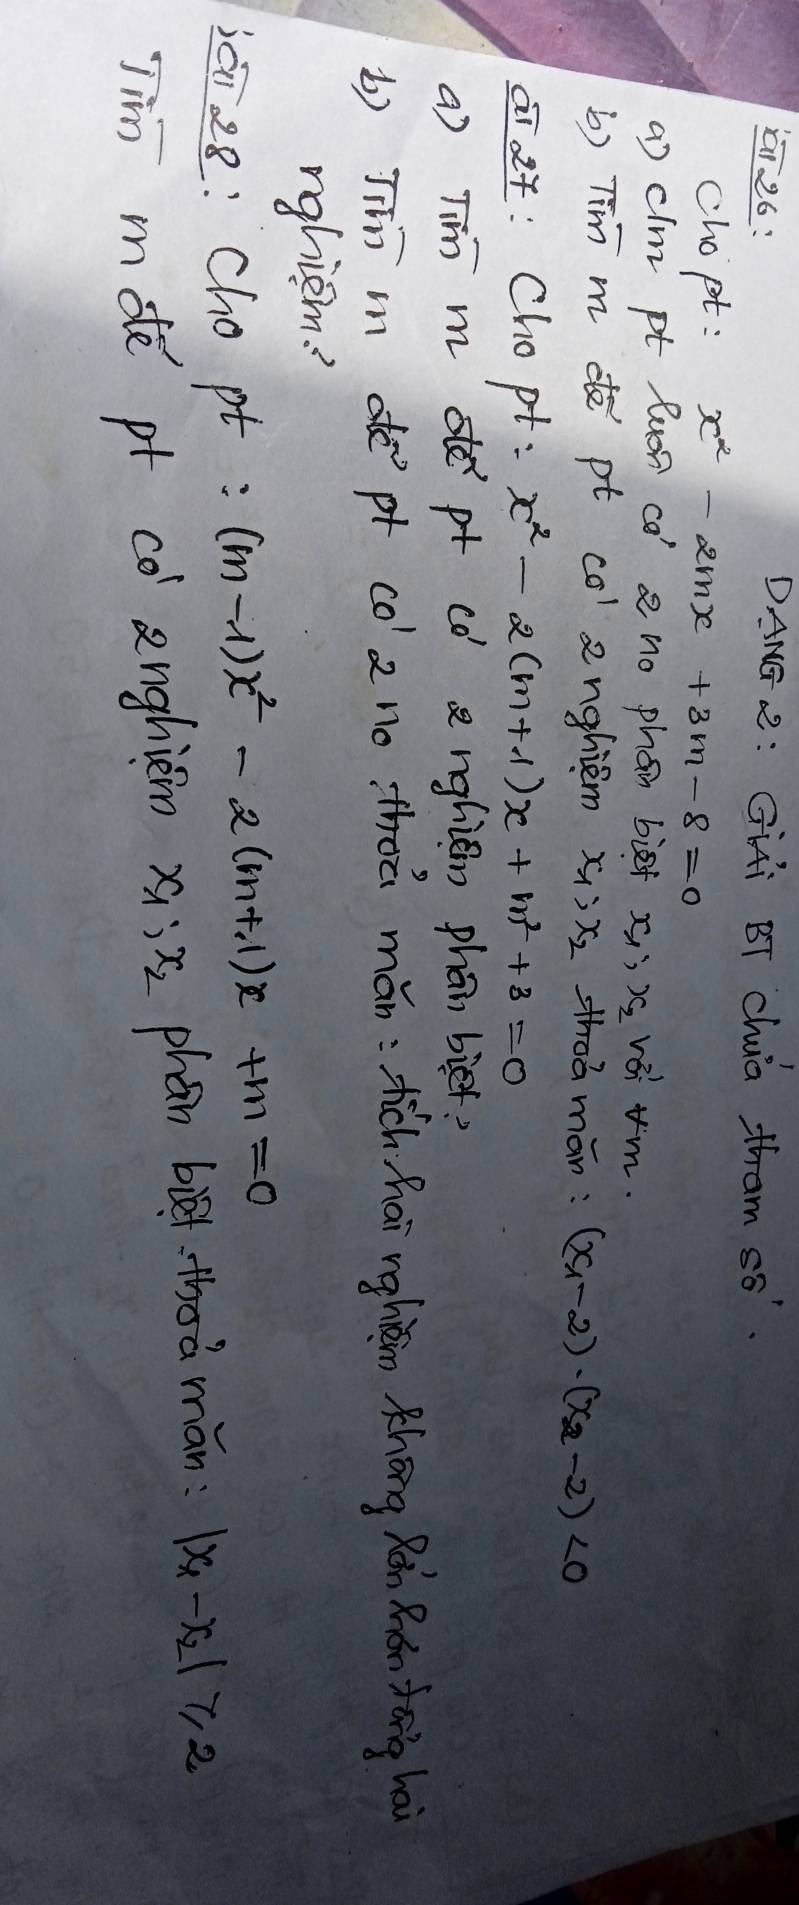 DẠNG 2: GIẢI BT chứa tham số.
ài 26:
Cho pt: x² - 2mx + 3m - 8 = 0
a) c/m pt luôn có 2 no phân biệt x₁; x₂ với ∀m.
b) Tìm m để pt có 2 nghiệm x₁; x₂ thoả mãn: (x₁-2).(x₂-2) <0
ài 27: Cho pt: x² - 2(m+1)x + m² + 3 = 0
a) Tìm m để pt có 2 nghiệm phân biệt?
b) Tìm m để pt có 2 no thoả mãn: tích hai nghiệm không lớn hơn tổng hai
nghiệm?
ài 28: Cho pt: (m-1)x² - 2(m+1)x + m = 0
Tìm m để pt có 2 nghiệm x₁; x₂ phân biệt thoả mãn: |x₁ - x₂| ≥ 2